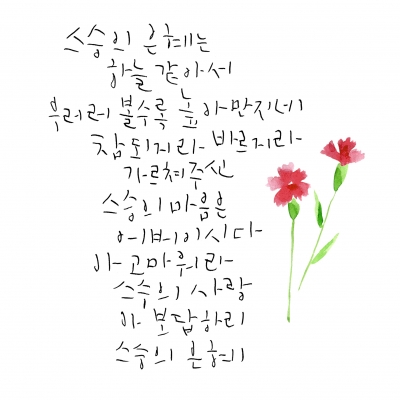 스승의 은혜는
하늘 같아서
우러러 볼수록 높아만지네
참되거라 바르거라
가르쳐주신
스승의 마음은
어버이시다
아 고마워라
스승의 사랑
아 보답하리
스승의 은혜